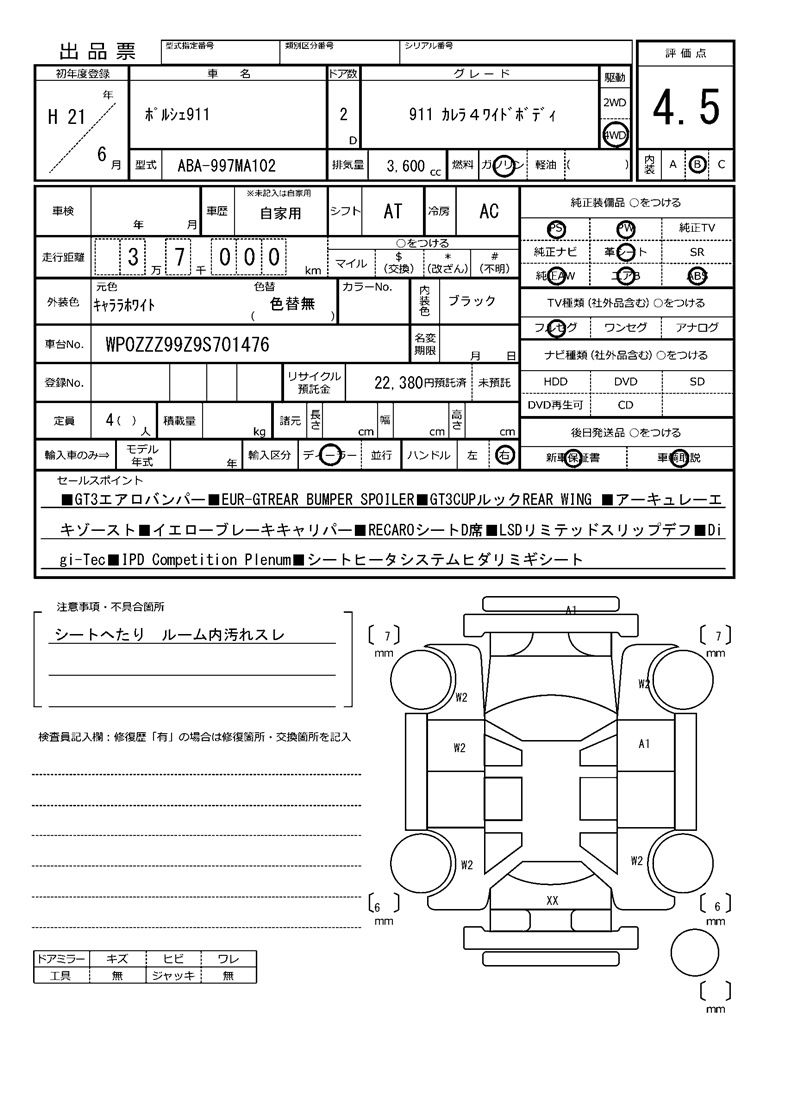 出品票 型式指定番号 類別区分番号 シリアル番号 評価点
初年度登録 車名 ドア数 グレード 駆動
H 21 年 6 月 ﾎﾟﾙｼｪ911 2 D 911 ｶﾚﾗ4ﾜｲﾄﾞﾎﾞﾃﾞｨ 2WD 4WD 4.5
型式 ABA-997MA102 排気量 3,600 cc 燃料 ガソリン 軽油 ( ) 内装 A B C
車検 年 月 車歴 ※未記入は自家用 自家用 シフト AT 冷房 AC 純正装備品 ○をつける
PS PW 純正TV
走行距離 3 万 7 千 0 0 0 km ○をつける
マイル $ (交換) * (改ざん) # (不明)
純正ナビ 革シート SR
純正AW エアB ABS
外装色 元色 ｷｬﾗﾗﾎﾜｲﾄ 色替 色替無 ( ) カラーNo. 内装色 ブラック
TV種類(社外品含む)○をつける
フルセグ ワンセグ アナログ
車台No. WP0ZZZ99Z9S701476 名変期限 月 日
ナビ種類(社外品含む)○をつける
登録No. リサイクル預託金 22,380円預託済 未預託
HDD DVD SD
DVD再生可 CD
定員 4( ) 人 積載量 kg 諸元 長さ cm 幅 cm 高さ cm
後日発送品 ○をつける
輸入車のみ⇒ モデル年式 年 輸入区分 ディーラー 並行 ハンドル 左 右
新車保証書 車輌取説
セールスポイント
■GT3エアロバンパー■EUR-GTREAR BUMPER SPOILER■GT3CUPルックREAR WING ■アーキュレーエ
キゾースト■イエローブレーキキャリパー■RECAROシートD席■LSDリミテッドスリップデフ■Di
gi-Tec■IPD Competition Plenum■シートヒータシステムヒダリミギシート
注意事項・不具合箇所
シートへたり ルーム内汚れスレ
検査員記入欄：修復歴「有」の場合は修復箇所・交換箇所を記入
A1
7 mm 7 mm
W2 W2
W2 A1
W2 W2
XX
6 mm 6 mm
mm
ドアミラー キズ ヒビ ワレ
工具 無 ジャッキ 無